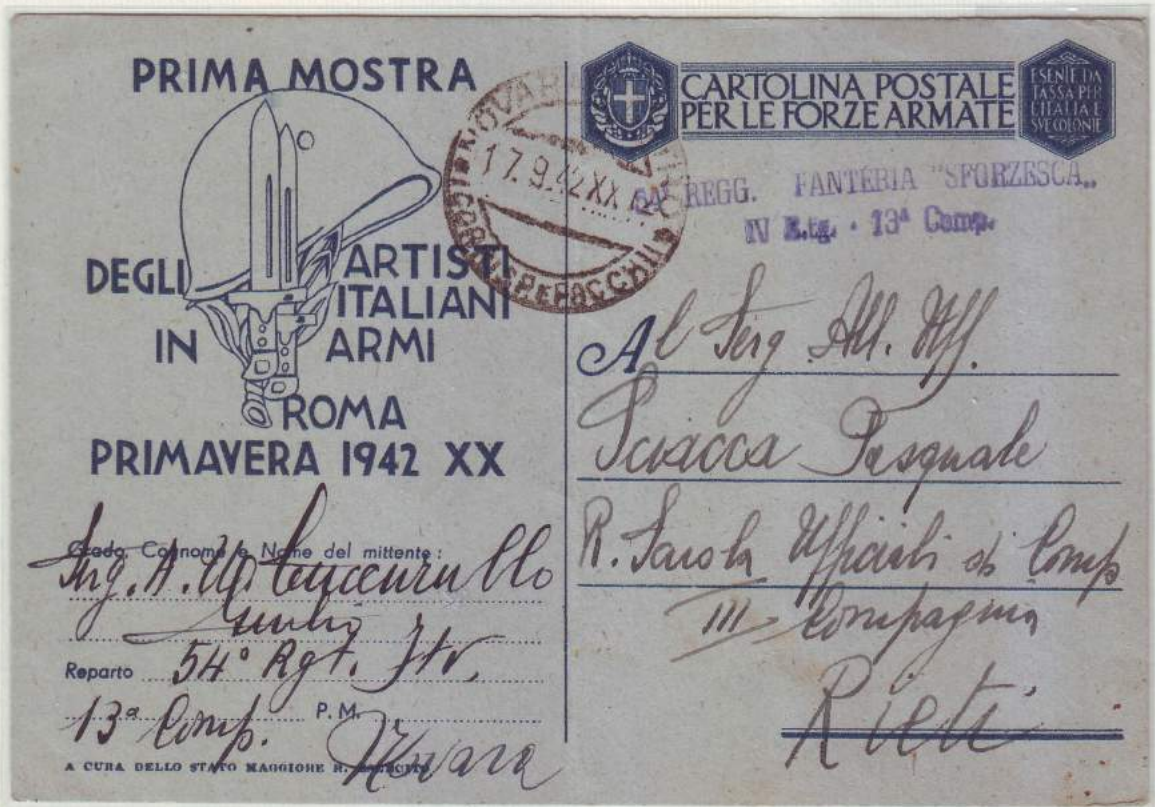 PRIMA MOSTRA
DEGLI ARTISTI
ITALIANI
IN ARMI
ROMA
PRIMAVERA 1942 XX
Grado, Cognome e Nome del mittente:
Serg. A. Uff.
Giulio
Reparto 54° Rgt. Ftr.
13ª Comp. P. M.
Novara
A CURA DELLO STATO MAGGIORE R. ESERCITO
NOVARA
17.9.42 XX
CORRISP. E PACCHI
CARTOLINA POSTALE
PER LE FORZE ARMATE
ESENTE DA
TASSA PER
L'ITALIA E
SVE COLONIE
54° REGG. FANTERIA "SFORZESCA"
IV Btg. - 13ª Comp.
Al Serg. All. Uff.
Sciacca Pasquale
R. Scuola Ufficiali di Comp
III Compagnia
Rieti